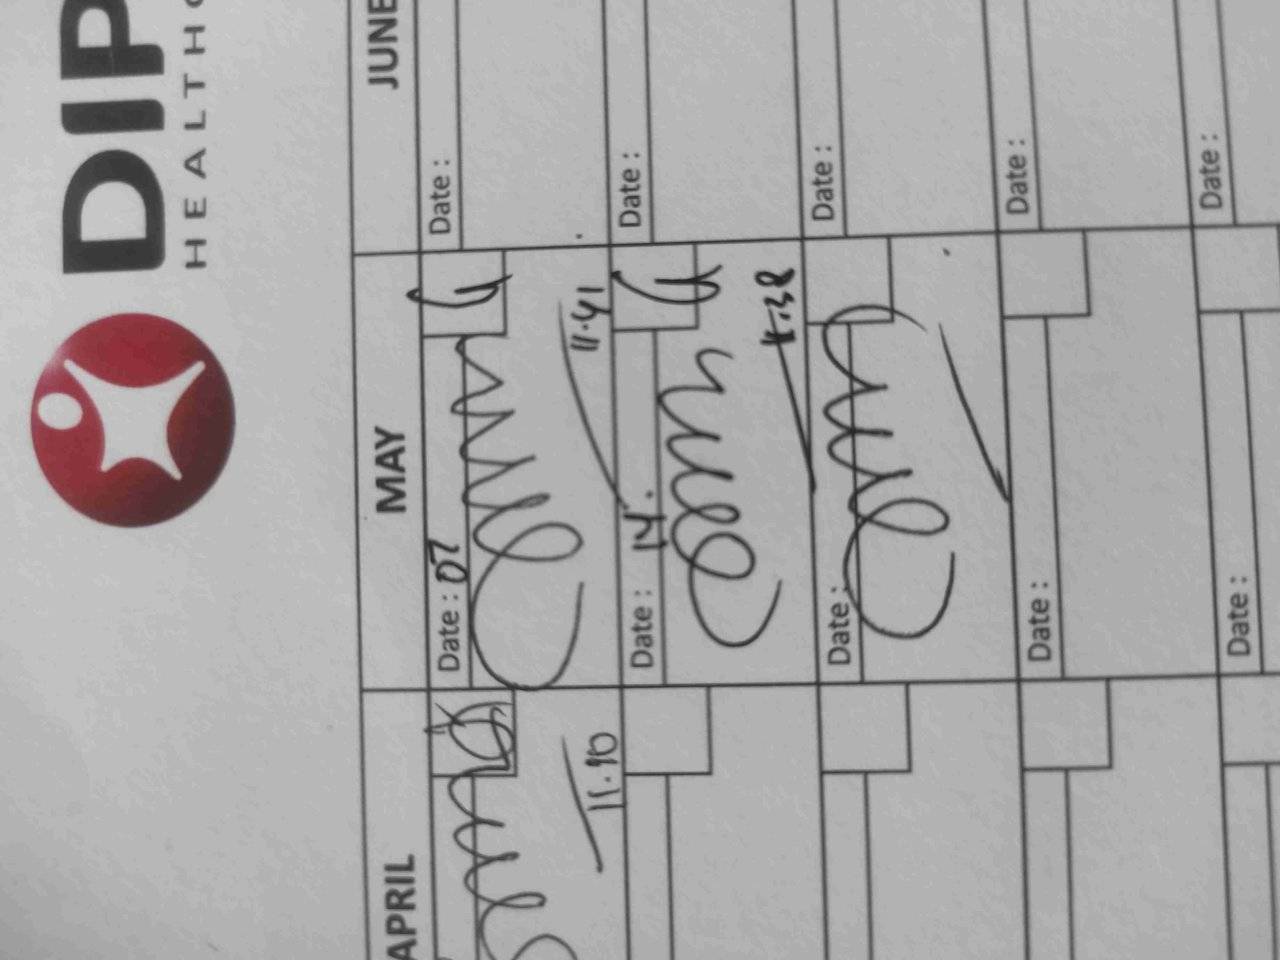 DIP
HEALTHC
APRIL
MAY
JUNE
Date : 07
Date :
11.40
11.41
Date : 14.
Date :
11.38
Date :
Date :
Date :
Date :
Date :
Date :